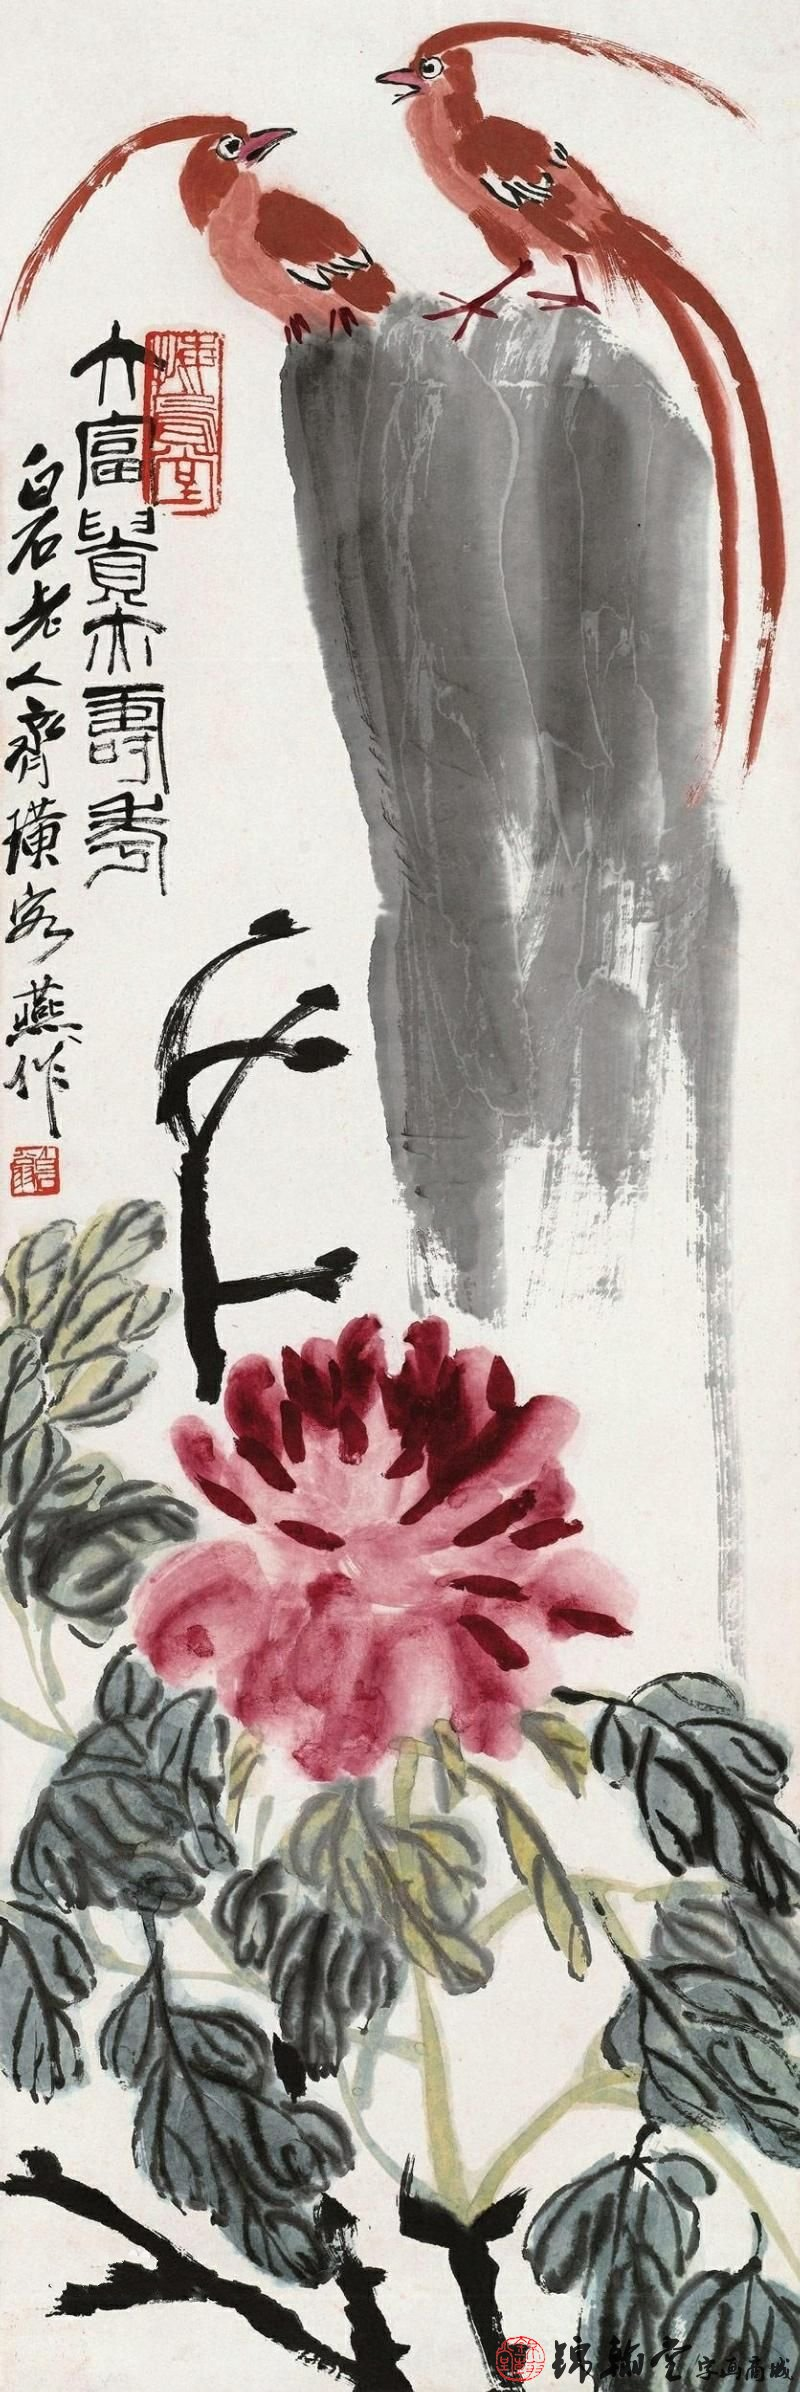 大富貴亦壽考
白石老人齊璜客燕作
錦翰堂字画商城